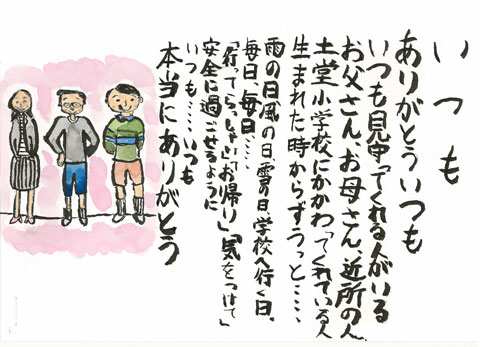 いつも
ありがとういつも
いつも見守ってくれる人がいる
お父さん、お母さん、近所の人、
土堂小学校にかかわってくれている人
生まれた時からずうっと……
雨の日風の日雪の日、学校へ行く日、
毎日、毎日……
「行ってらっしゃい」「お帰り」「気をつけて」
安全に過ごせるように
いつも……いつも
本当にありがとう